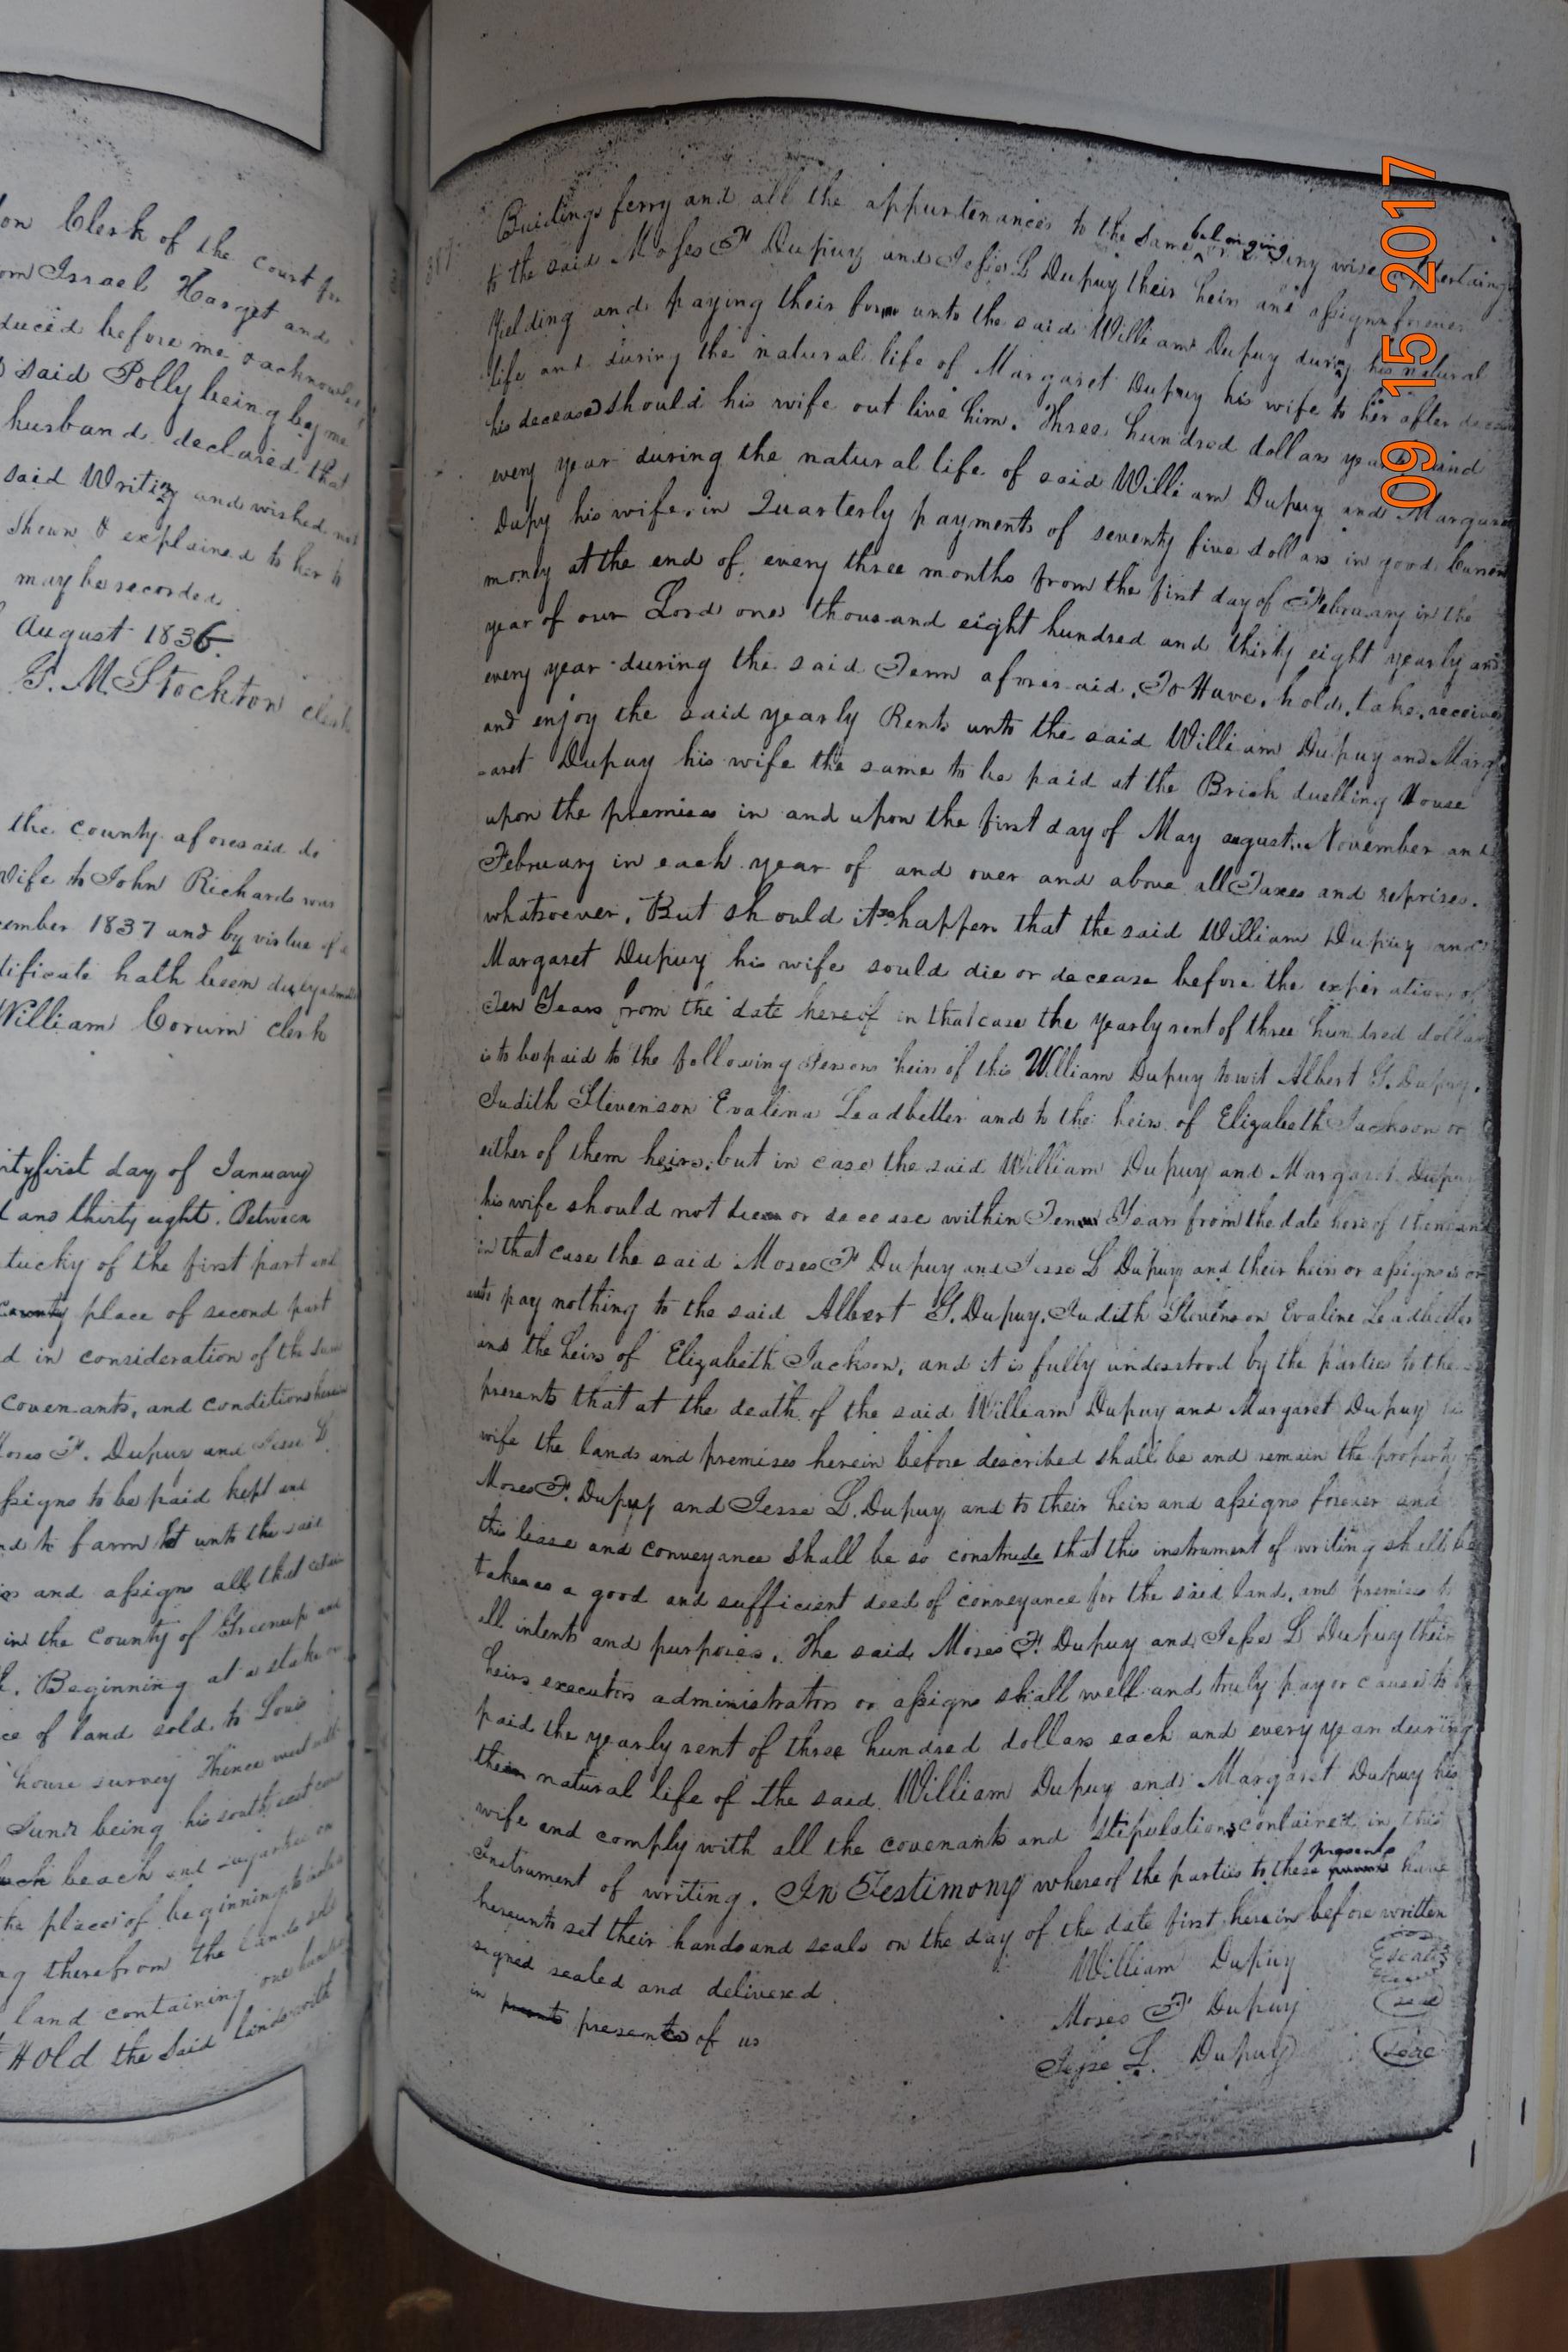 on Clerk of the court for
om Israel Harget and
duced before me & acknowle
said Polly being by me
husband declared that
said Writing and wished not
Shewn & explained to her to
may be recorded
August 1836.
G. M Stockton clerk
the county aforesaid do
Wife to John Richards was
cember 1837 and by virtue of a
tificate hath been duly
William Corum clerk
tyfirst day of January
d and thirty eight. Between
tucky of the first part and
County place of second part
d in consideration of the sum
covenants, and conditions herein
Moses F. Dupuy and Jesse L
ssigns to be paid kept and
nd to farm let unto the said
rs and assigns all that certain
in the County of Greenup and
Beginning at a stake
ce of land sold to Louis
house survey Thence west
being his south east
beach and sugartree on
the place of beginning
ng therefrom the lands
land containing one
Hold the Said lands with
Buidings ferry and all the appurtenances to the Same belonging any wise
to the said Moses F Dupuy and Jesse L Dupuy their heirs and assigns forever
Yielding and paying their form unto the said William Dupuy during his natural
life and during the natural life of Margaret Dupuy his wife to her after
his deceased should his wife out live him. Three hundred dollars yearly and
every year during the natural life of said William Dupuy and Margaret
Dupy his wife, in Quarterly payments of seventy five dollars in good
money at the end of every three months from the first day of February in the
year of our Lord one thousand eight hundred and thirty eight yearly and
every year during the said Term aforesaid, To Have, hold, take, receive
and enjoy the said yearly Rents unto the said William Dupuy and Marg
-aret Dupuy his wife the same to be paid at the Brick duelling House
upon the premises in and upon the first day of May august November and
February in each year of and over and above all Taxes and reprises.
whatsoever, But should it so happen that the said William Dupuy and
Margaret Dupuy his wife sould die or decease before the experation of
Ten Years from the date hereof in that case the yearly rent of three hundred dollars
is to be paid to the following Persons heirs of this William Dupuy to wit Albert G. Dupuy.
Judith Stevenson Evalina Leadbetter and to the heirs of Elizabeth Jackson or
either of them heirs, but in case the said William Dupuy and Margaret Dupuy
his wife should not die or decease within Ten Years from the date hereof then and
in that case the said Moses F Dupuy and Jesse L Dupuy and their heirs or assigns is or
pay nothing to the said Albert G. Dupuy, Judith Stevenson Evaline Leadbetter
and the heirs of Elizabeth Jackson, and it is fully understood by the parties to the
presents that at the death of the said William Dupuy and Margaret Dupuy his
wife the lands and premises herein before described shall be and remain the property
Moses F. Dupuy and Jesse L. Dupuy and to their heirs and assigns forever and
this lease and conveyance shall be so construde that this instrument of writing shall be
taken as a good and sufficient deed of conveyance for the said land, and premises to
all intents and purposes, The said Moses F. Dupuy and Jesse L Dupuy their
heirs executors administrators or assigns shall well and truly pay or cause to be
paid the yearly rent of three hundred dollars each and every year during
the natural life of the said William Dupuy and Margaret Dupuy his
wife and comply with all the covenants and stipulations contained in this
instrument of writing. In Testimony whereof the parties to these presents have
hereunto set their hands and seals on the day of the date first herein before written
signed sealed and delivered
in presents of us
William Dupuy Seal
Moses F Dupuy Seal
Jesse L. Dupuy Seal
09 15 2017